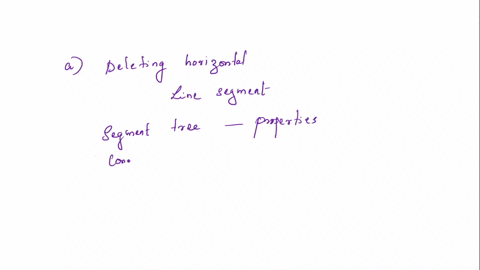 a) Deleting horizontal
Line segment
Segment tree — properties
Con